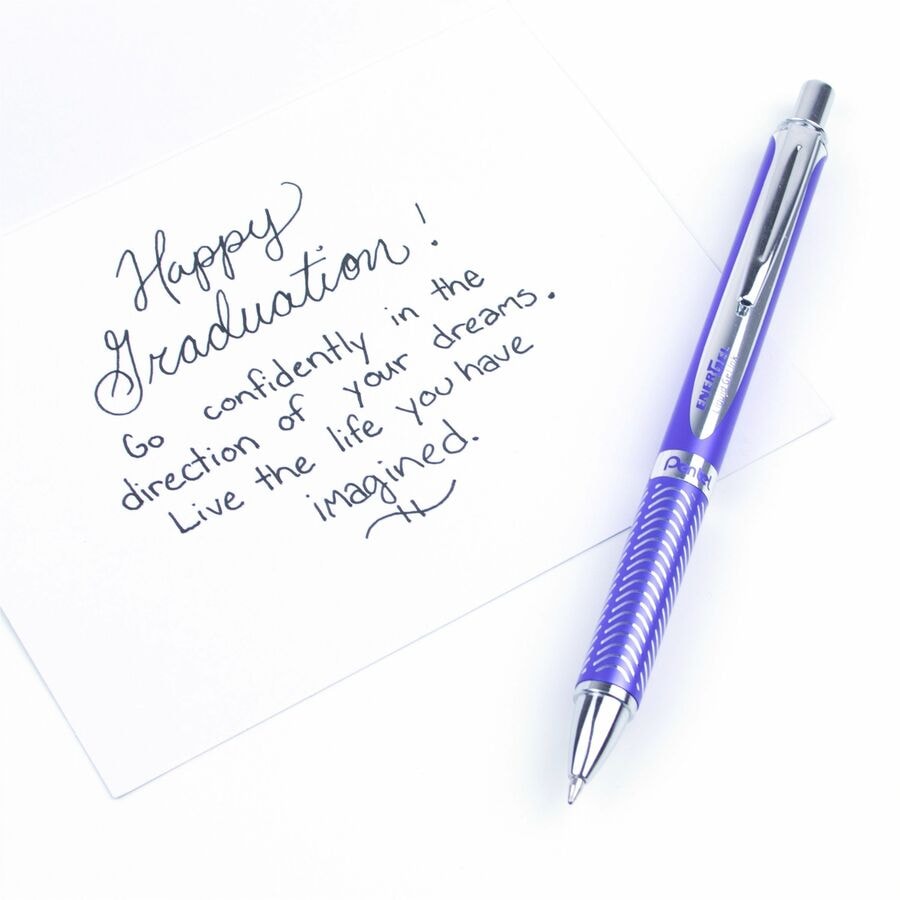 Happy
Graduation!
Go confidently in the
direction of your dreams.
Live the life you have
imagined.
ENERGEL
Pentel